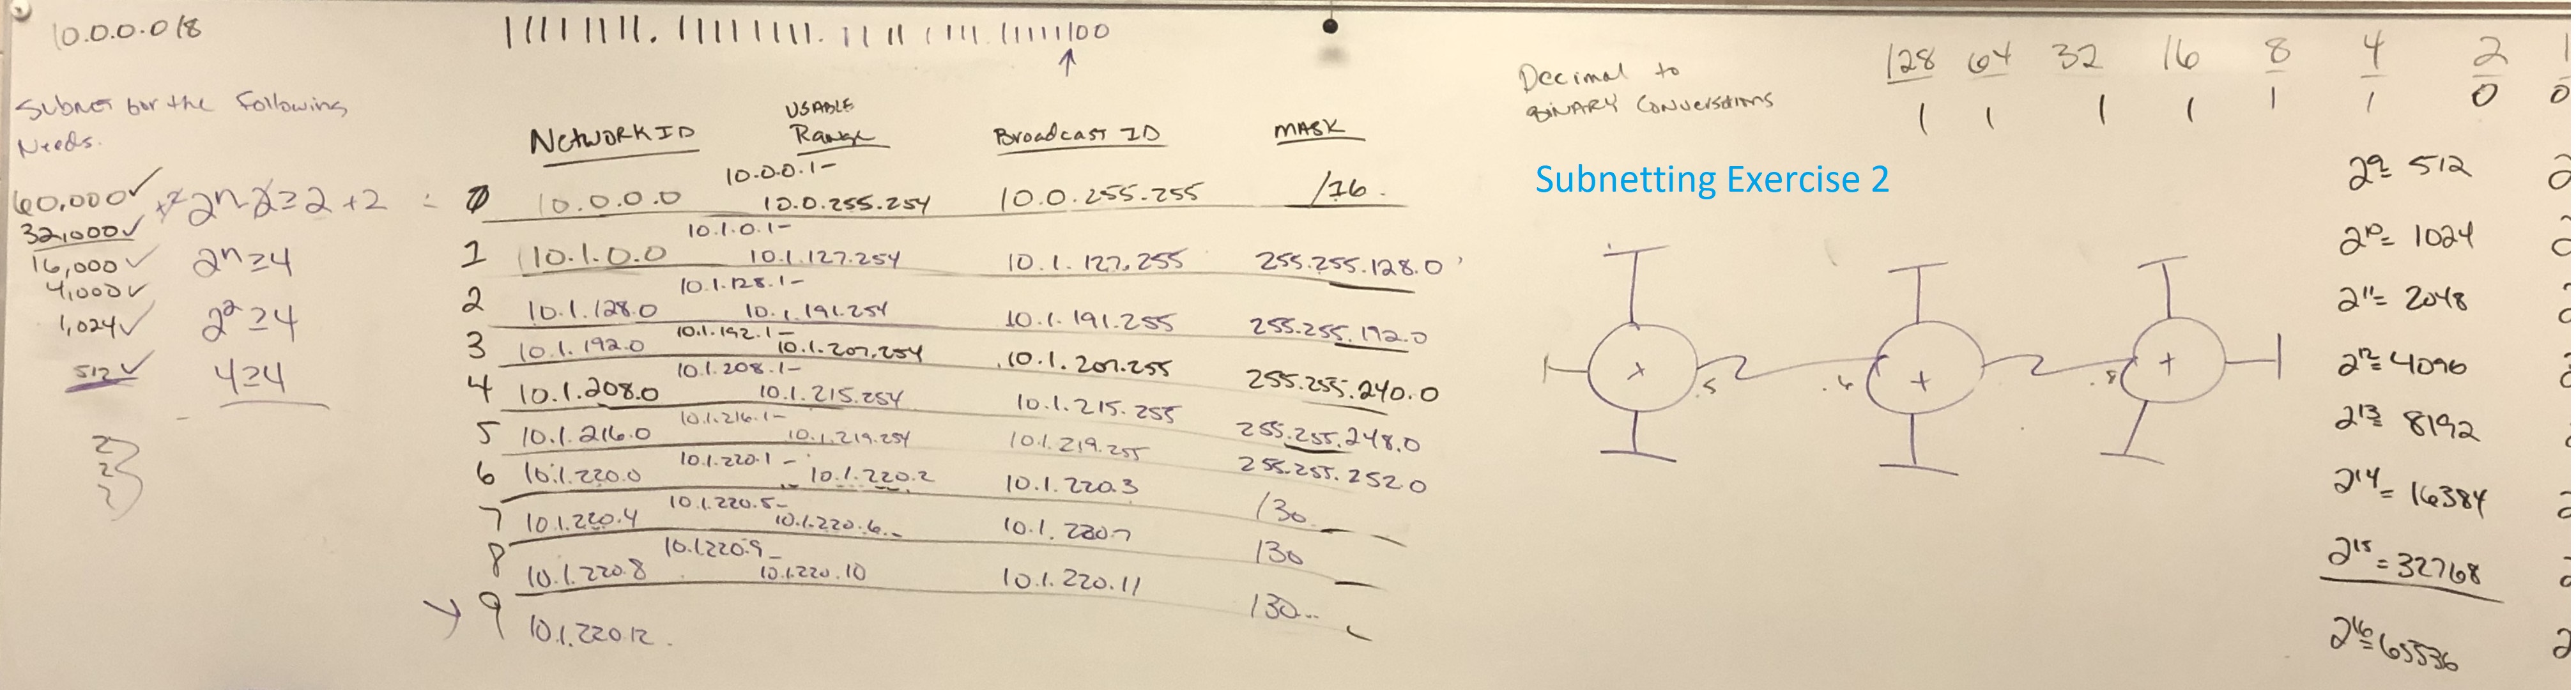 10.0.0.0/8
11111111.11111111.11111111.11111100
Subnet for the Following
Needs.
60,000✓
32,000✓
16,000✓
4,000✓
1,024✓
512✓
2
2
2
+2 2ⁿ-2≥2+2
2ⁿ≥4
2²≥4
4≥4
NETWORK ID USABLE Range Broadcast ID MASK
0 10.0.0.0 10.0.0.1- 10.0.255.254 10.0.255.255 /16.
1 10.1.0.0 10.1.0.1- 10.1.127.254 10.1.127.255 255.255.128.0
2 10.1.128.0 10.1.128.1- 10.1.191.254 10.1.191.255 255.255.192.0
3 10.1.192.0 10.1.192.1- 10.1.207.254 10.1.207.255 255.255.240.0
4 10.1.208.0 10.1.208.1- 10.1.215.254 10.1.215.255 255.255.248.0
5 10.1.216.0 10.1.216.1- 10.1.219.254 10.1.219.255 255.255.252.0
6 10.1.220.0 10.1.220.1- 10.1.220.2 10.1.220.3 /30
7 10.1.220.4 10.1.220.5- 10.1.220.6 10.1.220.7 /30
8 10.1.220.8 10.1.220.9- 10.1.220.10 10.1.220.11 /30
9 10.1.220.12.
Decimal to
BINARY Conversations
128 64 32 16 8 4 2 1
1 1 1 1 1 1 0 0
Subnetting Exercise 2
.5 .6
2⁹= 512
2¹⁰= 1024
2¹¹= 2048
2¹²= 4096
2¹³= 8192
2¹⁴= 16384
2¹⁵= 32768
2¹⁶= 65536